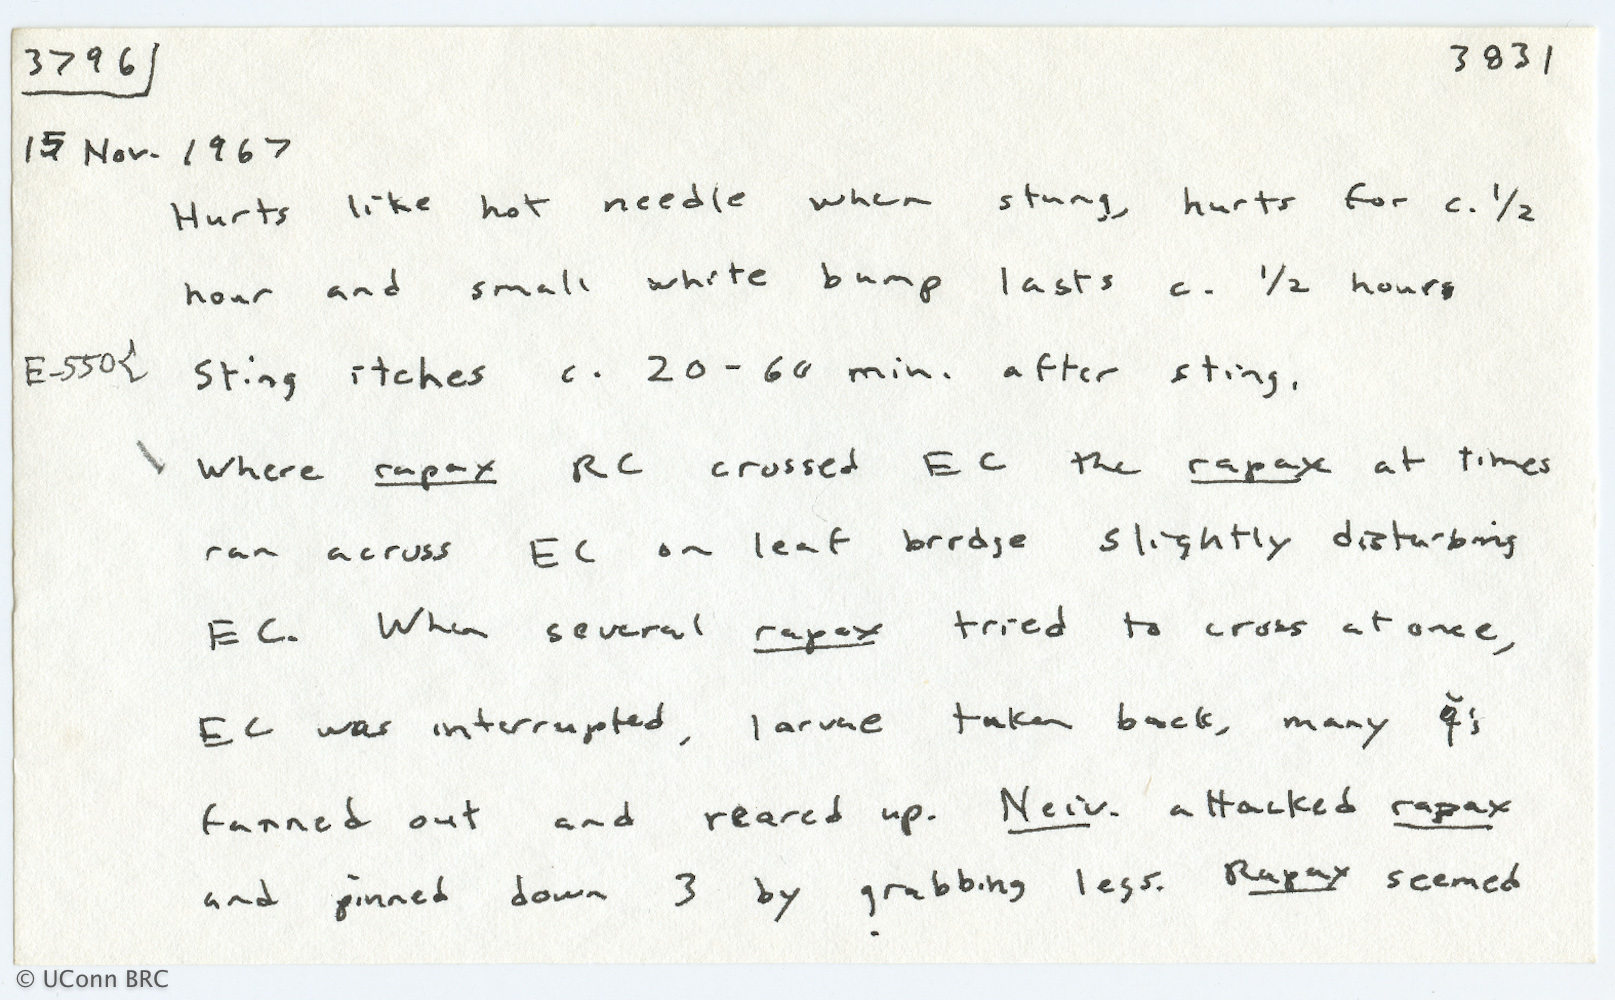 3796 3831
15 Nov. 1967
Hurts like hot needle when stung, hurts for c. 1/2
hour and small white bump lasts c. 1/2 hours
E-550{ Sting itches c. 20-60 min. after sting.
Where rapax RC crossed EC the rapax at times
ran across EC on leaf bridge slightly disturbing
EC. When several rapax tried to cross at once,
EC was interrupted, larvae taken back, many ☿'s
fanned out and reared up. Neiv. attacked rapax
and pinned down 3 by grabbing legs. Rapax seemed
© UConn BRC